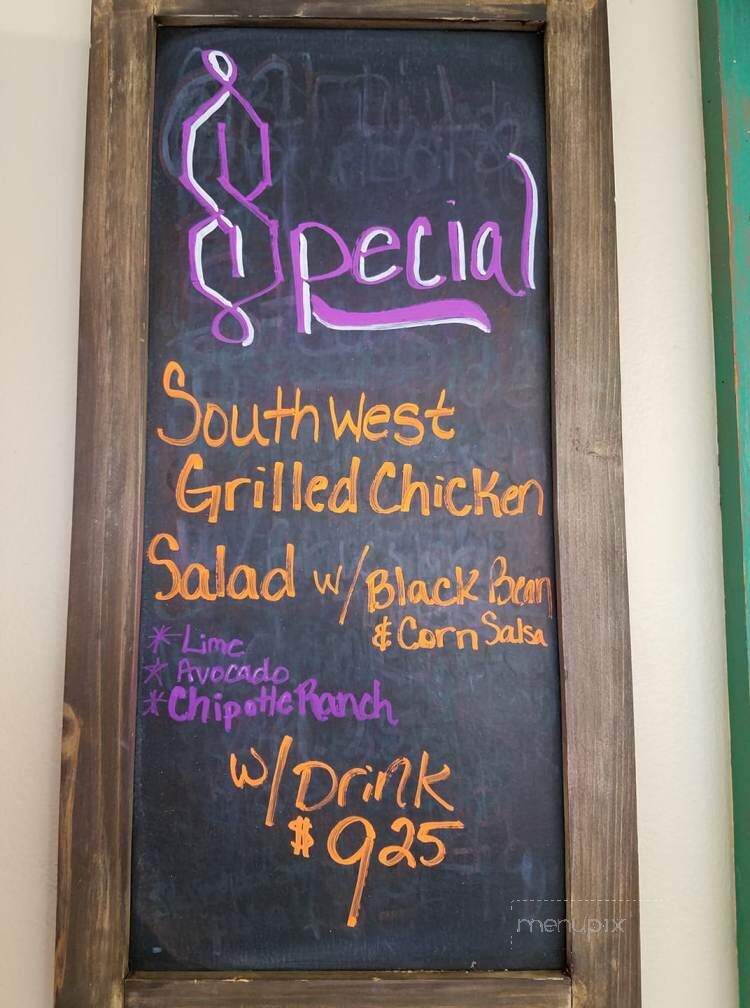 Special
South West
Grilled Chicken
Salad w/ Black Bean
& Corn Salsa
* Lime
* Avocado
* Chipotle Ranch
w/ Drink
$925
menupix